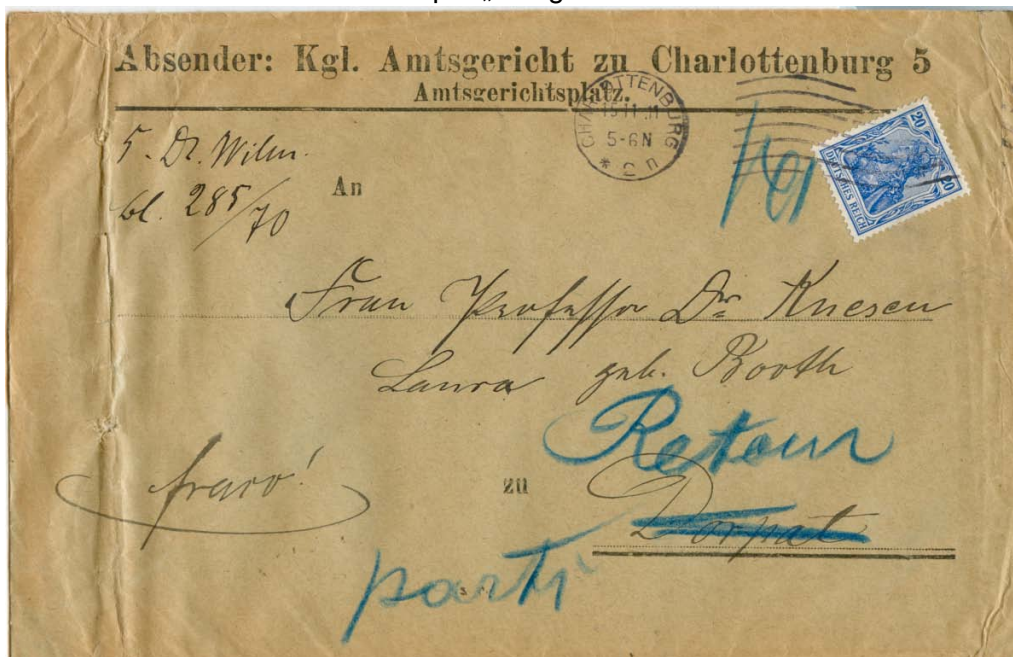 Absender: Kgl. Amtsgericht zu Charlottenburg 5
Amtsgerichtsplatz.
CHARLOTTENBURG
5-6 N
* 2 n
20
20
DEUTSCHES REICH
5. Dr. Wilm.
bl. 285/70
An
Frau Professor Dr. Kuesen
Laura geb. Booth
Retour
franco!
zu
Dorpat
parti